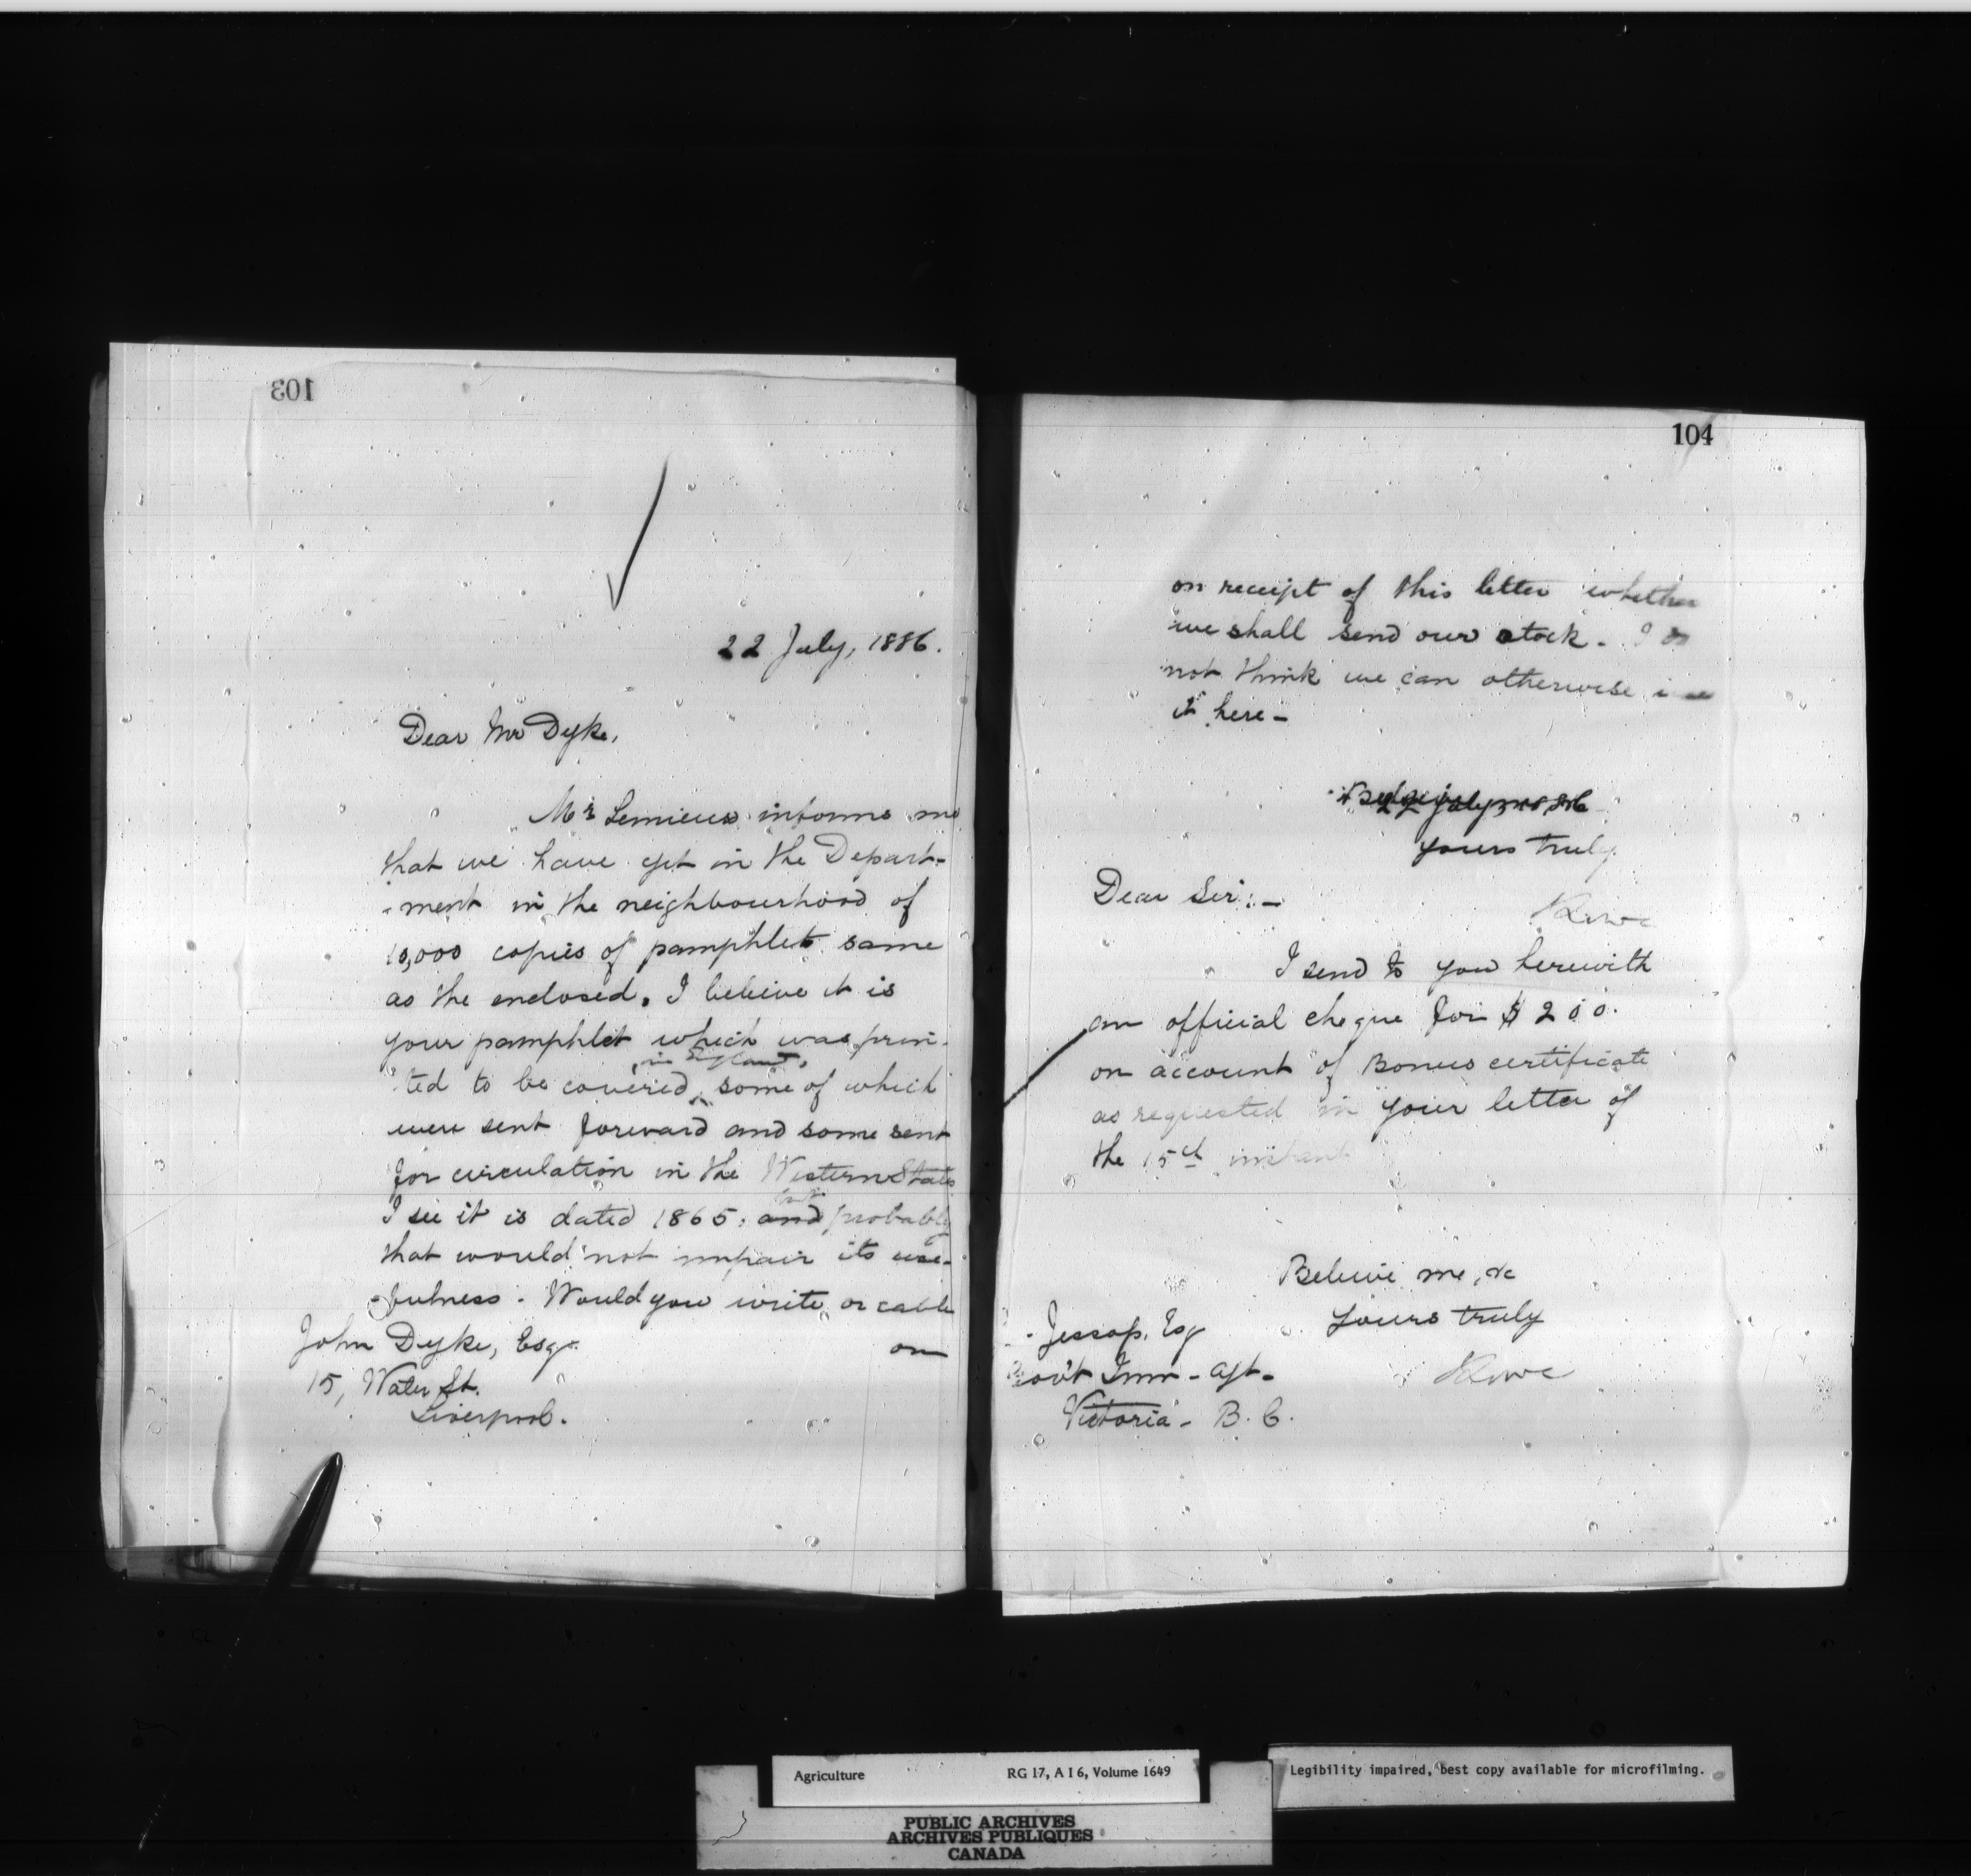 103
22 July, 1886.
Dear Mr Dyke,
Mr Lemieux informs me
that we have yet in the Depart-
-ment in the neighbourhood of
10,000 copies of pamphlet same
as the enclosed. I believe it is
your pamphlet which was prin-
in England,
ted to be covered, some of which
were sent forward and some sent
for circulation in the Western States
I see it is dated 1865, and probably
but
that would not impair its use-
-fulness. Would you write or cable
on
John Dyke, Esq.
15, Water St.
Liverpool.
104
on receipt of this letter whether
we shall send our stock. I do
not think we can otherwise
it here -
22 July,
yours truly
Dear Sir: -
I send to you herewith
an official cheque for $200.
on account of Bonus certificate
as requested in your letter of
the 15th instant
Believe me, &c
Yours truly
Lowe
Jessop, Esq
Gov't Imm - Agt -
Victoria - B. C.
Agriculture RG 17, A I 6, Volume 1649
Legibility impaired, best copy available for microfilming.
PUBLIC ARCHIVES
ARCHIVES PUBLIQUES
CANADA